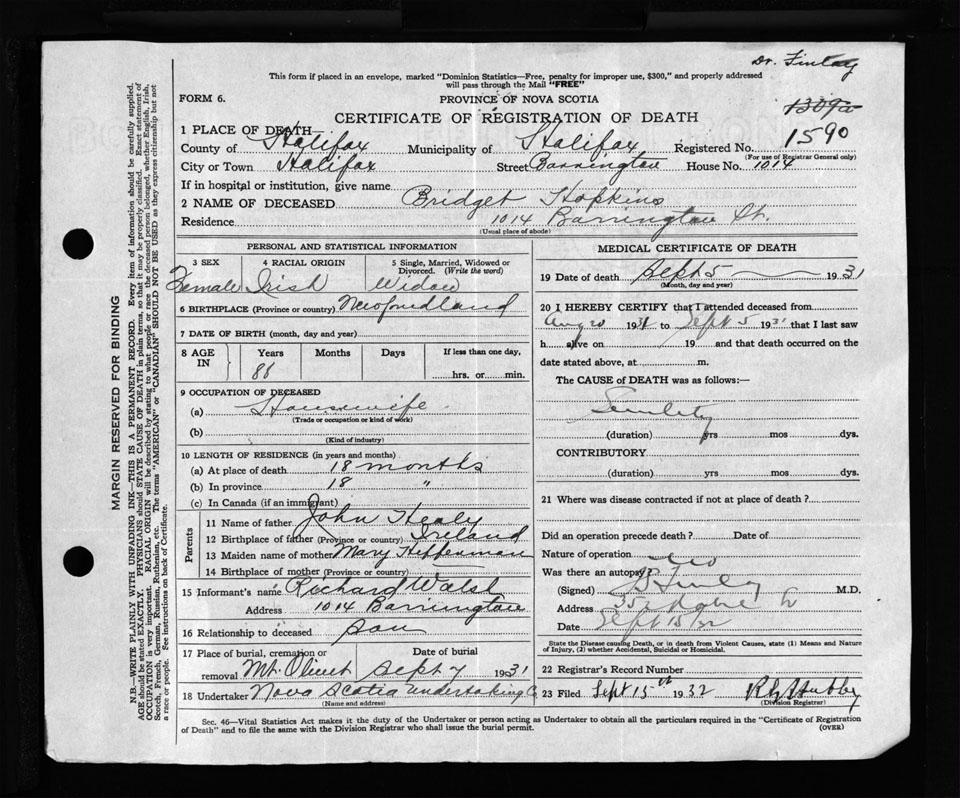 Dr. Finlay
This form if placed in an envelope, marked "Dominion Statistics—Free, penalty for improper use, $300," and properly addressed
will pass through the Mail "FREE"
FORM 6.
PROVINCE OF NOVA SCOTIA
CERTIFICATE OF REGISTRATION OF DEATH
1 PLACE OF DEATH
County of Halifax Municipality of Halifax Registered No. 1590
(For use of Registrar General only)
City or Town Halifax Street Barrington House No. 1014
If in hospital or institution, give name
2 NAME OF DECEASED Bridget Hopkins
Residence 1014 Barrington St.
(Usual place of abode)
PERSONAL AND STATISTICAL INFORMATION
3 SEX 4 RACIAL ORIGIN 5 Single, Married, Widowed or
Divorced. (Write the word)
Female Irish Widow
6 BIRTHPLACE (Province or country) Newfoundland
7 DATE OF BIRTH (month, day and year)
8 AGE IN Years Months Days If less than one day,
88 hrs. or min.
9 OCCUPATION OF DECEASED
(a) Housewife
(Trade or occupation or kind of work)
(b)
(Kind of industry)
10 LENGTH OF RESIDENCE (in years and months)
(a) At place of death 18 months
(b) In province 18 "
(c) In Canada (if an immigrant)
Parents
11 Name of father John Healy
12 Birthplace of father (Province or country) Ireland
13 Maiden name of mother Mary Heffernan
14 Birthplace of mother (Province or country)
15 Informant's name Richard Walsh
Address 1014 Barrington
16 Relationship to deceased son
17 Place of burial, cremation or Date of burial
removal Mt. Olivet Sept 7 1931
18 Undertaker Nova Scotia Undertaking Co
(Name and address)
MEDICAL CERTIFICATE OF DEATH
19 Date of death Sept 5 1931
(Month, day and year)
20 I HEREBY CERTIFY that I attended deceased from
Aug 20 1931 to Sept 5 1931 that I last saw
h alive on 19 and that death occurred on the
date stated above, at m.
The CAUSE OF DEATH was as follows:—
Senility
(duration) yrs mos dys.
CONTRIBUTORY
(duration) yrs mos dys.
21 Where was disease contracted if not at place of death ?
Did an operation precede death ? Date of
Nature of operation
Was there an autopsy? No
(Signed) Finlay M.D.
Address
Date Sept 15/32
State the Disease causing Death, or in death from Violent Causes, state (1) Means and Nature
of Injury, (2) whether Accidental, Suicidal or Homicidal.
22 Registrar's Record Number
23 Filed Sept 15th 1932
(Division Registrar)
Sec. 46—Vital Statistics Act makes it the duty of the Undertaker or person acting as Undertaker to obtain all the particulars required in the "Certificate of Registration
of Death" and to file the same with the Division Registrar who shall issue the burial permit.
(OVER)
MARGIN RESERVED FOR BINDING
N.B.—WRITE PLAINLY WITH UNFADING INK—THIS IS A PERMANENT RECORD. Every item of information should be carefully supplied.
AGE should be stated EXACTLY. PHYSICIANS should STATE CAUSE OF DEATH in plain terms, so that it may be properly classified. Exact statement of
OCCUPATION is very important. RACIAL ORIGIN will be described by stating to what people or race the deceased person belonged, whether English, Irish,
Scotch, French, German, Russian, Ruthenian, etc. The terms "AMERICAN" or "CANADIAN" SHOULD NOT BE USED as they express citizenship but not
a race or people. See instructions on back of Certificate.